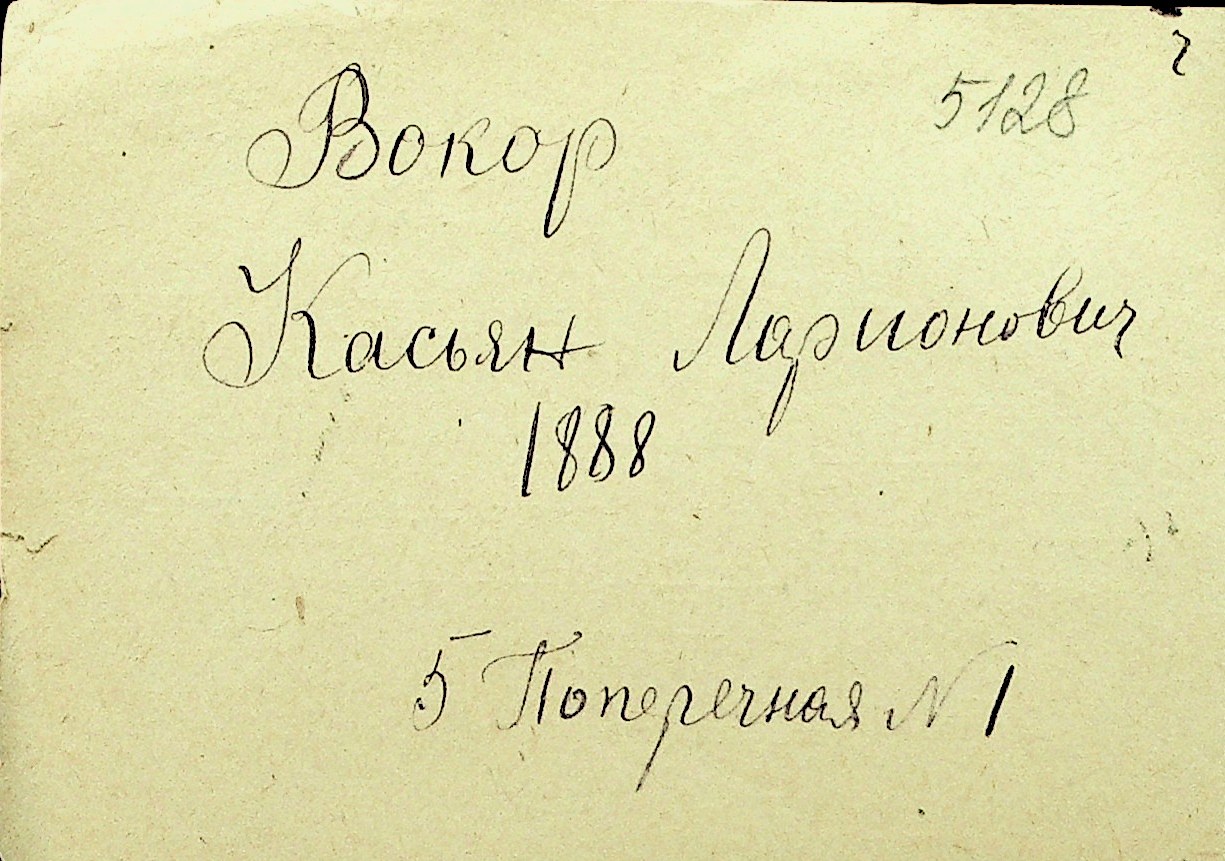 5128
Вокор
Касьян Ларионович
1888
5 Поперечная N 1